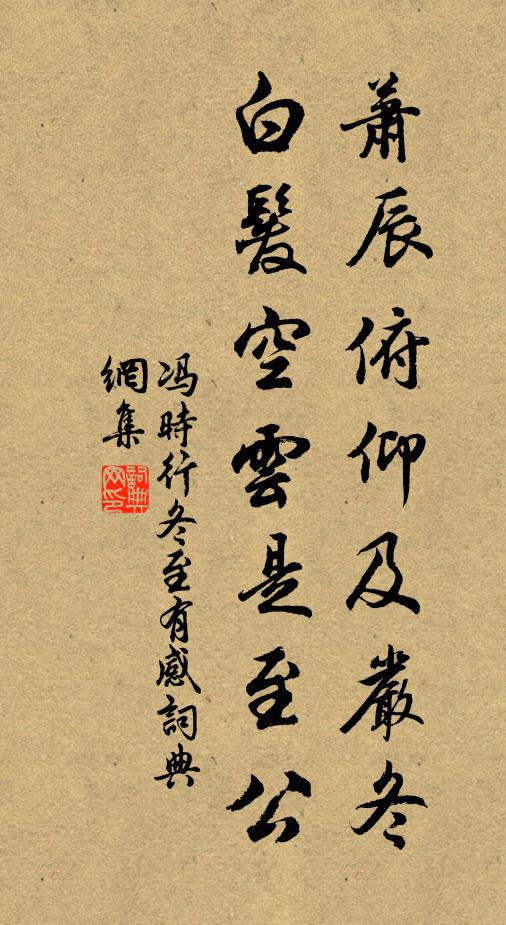 蕭辰俯仰及嚴冬
白髮空雲是至公
馮時行冬至有感詞典
網集
詞典
网印